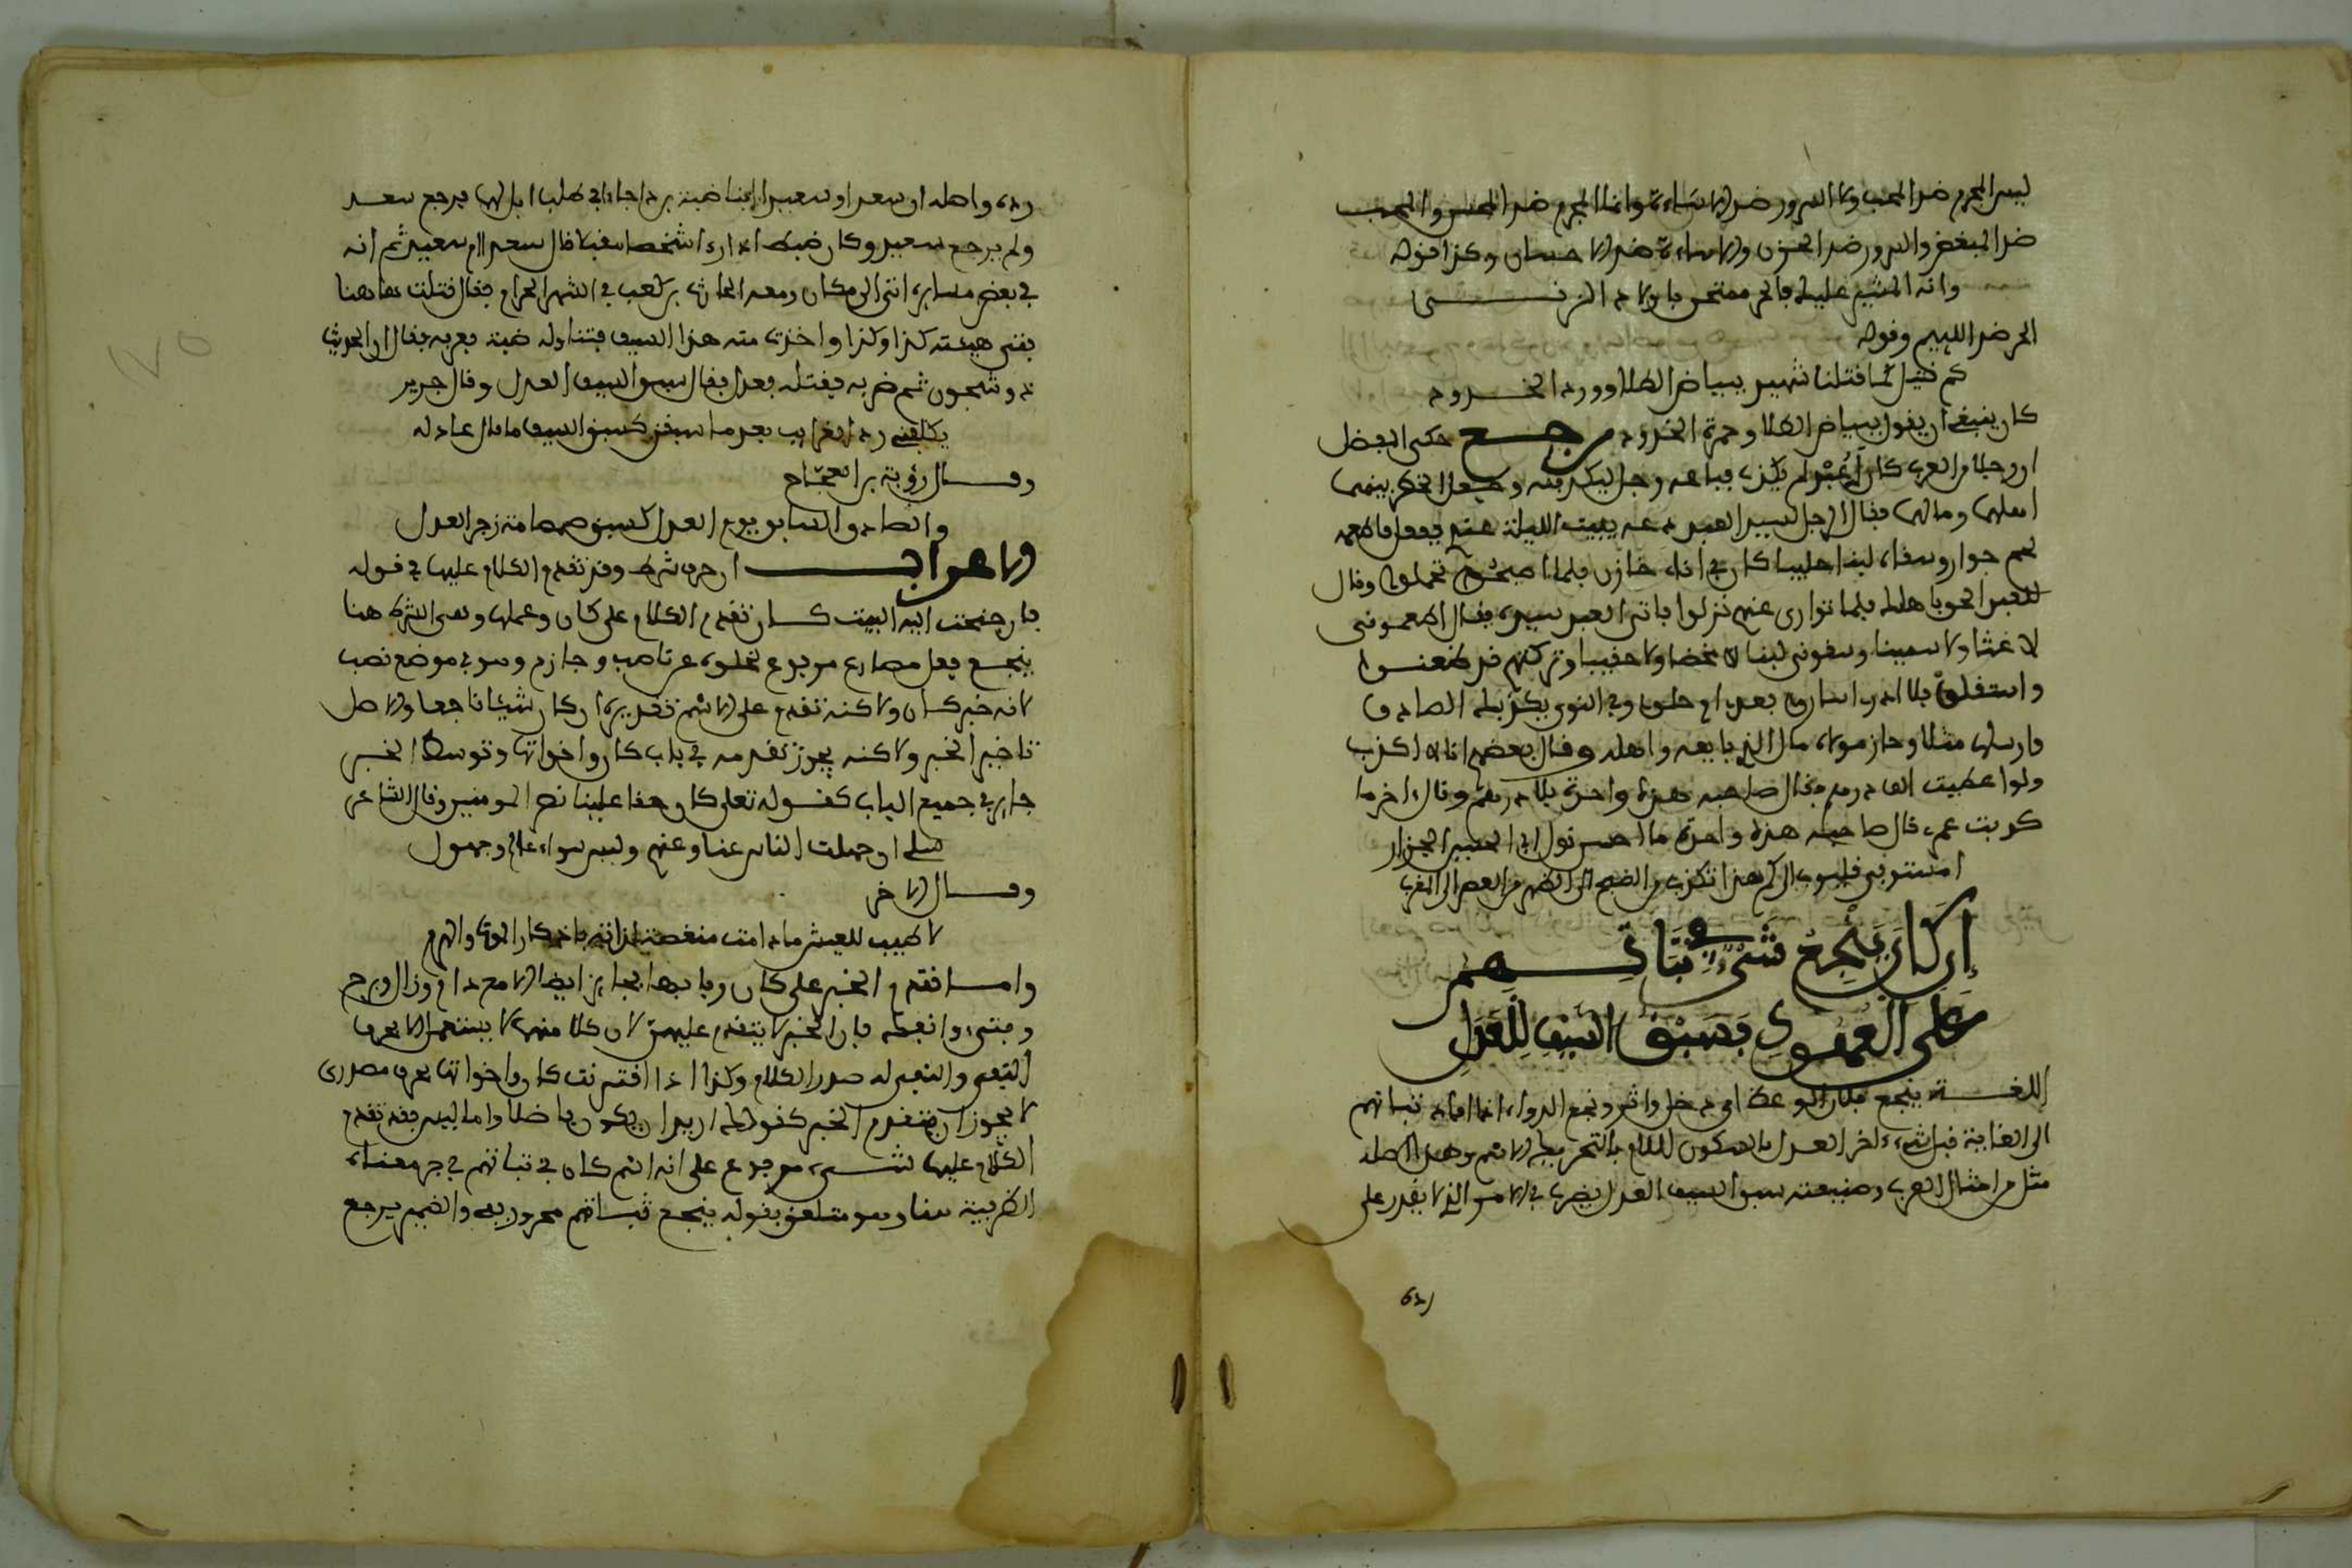 ليس المجرم ضد المحب ولا السرور ضد الاساءة وانما المجرم ضد المحسن والمحب
ضد المبغض والسرور ضد الحزن والاساءة ضد الاحسان وكذا قوله
وانه المشير عليك بي فالحر ممتحن باولاد الزنى
الحر ضد اللئيم وقوله
كم قتيل كما قتلنا شهيد ببياض الطلا وورد الخدود
كان ينبغي ان يقول ببياض الطلا وحمرة الخدود مرجع حكى المفضل
ان رجلا من العرب كان له عبد لم يكذب فبايعه رجل ليكذبنه وجعل الخطر بينهما
اهلهما ومالهما فقال الرجل لسيد العبد دعه يبيت الليلة عندي ففعل فاطعمه
لحم حوار وسقاه لبنا حليبا كان في اناء حازر فلما اصبحوا تحملوا وقال
للعبد الحق باهلك فلما توارى عنهم نزلوا فاتى العبد سيده فقال اطعموني
لا غثا ولا سمينا وسقوني لبنا لا مخضا ولا حقينا وتركتهم قد ظعنوا
واستقلوا فلا ادري اساروا بعد او حلوا وفي النوى يكذبك الصادق
فارسلها مثلا وحاز مولاه مال الذي بايعه واهله وقال بعضهم انا لا اكذب
ولو اعطيت الف درهم فقال صاحبه هذه واحدة بلا درهم وقال اخر ما
كذبت عمري قال صاحبه هذه واحدة ما احسن قول ابي الحسين الجزار
الى كم هذا تكذب من الصبح الى الظهر من العصر الى المغرب
إن كان ينجع شيء في ثباتهم
على العهود فسبق السيف للعذل
اللغة ينجع فلان الوعظ اي دخل واثر ونجع الدواء اذا افاد ثباتهم
الى الغاية قبل شيء اخر العذل بالسكون الملام بالتحريك الاسم وهذا اصله
مثل من امثال العرب وصنيعته سبق السيف العذل يضرب في الامر الذي لا يقدر على
رده
رده واصله ان سعدا وسعيدا ابنا ضبة بن اد خرجا في طلب ابل لهما فرجع سعد
ولم يرجع سعيد وكان ضبة اذا راى شخصا مقبلا قال سعد ام سعيد ثم انه
في بعض مسايره اتى الى مكان ومعه الحارث بن كعب في الشهر الحرام فقال قتلت هاهنا
فتى هيئته كذا وكذا واخذت منه هذا السيف فتناوله ضبة فعرفه فقال ان الحديث
ذو شجون ثم ضربه فقتله فعذل فقال سبق السيف العذل وقال جرير
يكلفني رد الغرائب بعد ما سبقن كسبق السيف ما قال عاذله
وقال رؤبة بن العجاج
والصادق السابق يوم العذل كسبق صمصامة زجر العدل
الاعراب ان حرف شرط وقد تقدم الكلام عليها في قوله
فان جنحت اليه البيت كان تقدم الكلام على كان وعملها وهي الشرط هنا
ينجع فعل مضارع مرفوع لخلوه عن ناصب وجازم وهو في موضع نصب
لانه خبر كان ولاكنه تقدم على الاسم تقديره ان كان شيئا ناجعا والاصل
تاخير الخبر ولاكنه يجوز تقدمه في باب كان واخواتها وتوسط الخبر
جايز في جميع الباب كقوله تعلى كان حقا علينا نصر المومنين وقال الشاعر
سلي ان جهلت الناس عنا وعنهم وليس سواء عالم وجهول
وقال الاخر
لا طيب للعيش ما دامت منغصة لذاته بادكار الموت والهرم
واما تقدم الخبر على كان وبابها فجايز ايضا الا مع دام وزال وبرح
وفتئ وانفك فان الخبر لا يتقدم عليهن لان كلا منها لا يستعمل الا بحرف
النفي والنفي له صدر الكلام وكذا اذا اقترنت كان واخواتها بحرف مصدري
لا يجوز ان يتقدم الخبر كقولك اريد ان يكون فاضلا واما ليس فقد تقدم
الكلام عليها لشيء مرفوع على انه اسم كان في ثباتهم في حر معناه
الظرفية هنا وهو متعلق بقوله ينجع ثباتهم مجرور بفي والضمير يرجع